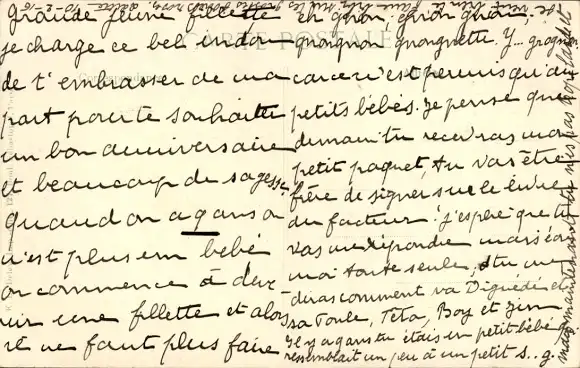 grande jeune fillette
je charge ce bel
de t'embrasser de ma
part pour te souhaiter
un bon anniversaire
et beaucoup de sagesse.
quand on a 9 ans on
n'est plus un bébé
on commence à deve
nir une fillette et alors
il ne faut plus faire
CARTE POSTALE
grognon grongnette. Y...
car ce n'est permis qu'au
petits bébés. Je pense que
demain tu recevras mon
petit paquet, tu vas être
fière de signer sur le livre
du facteur! j'espère que tu
vas me répondre mais
moi toute seule, tu me
diras comment va
sa Toule, Teta, Boy et Zim
Il y a 9 ans tu étais un petit bébé
ressemblait un peu à un petit s..g.
mais maintenant tu n'es pas